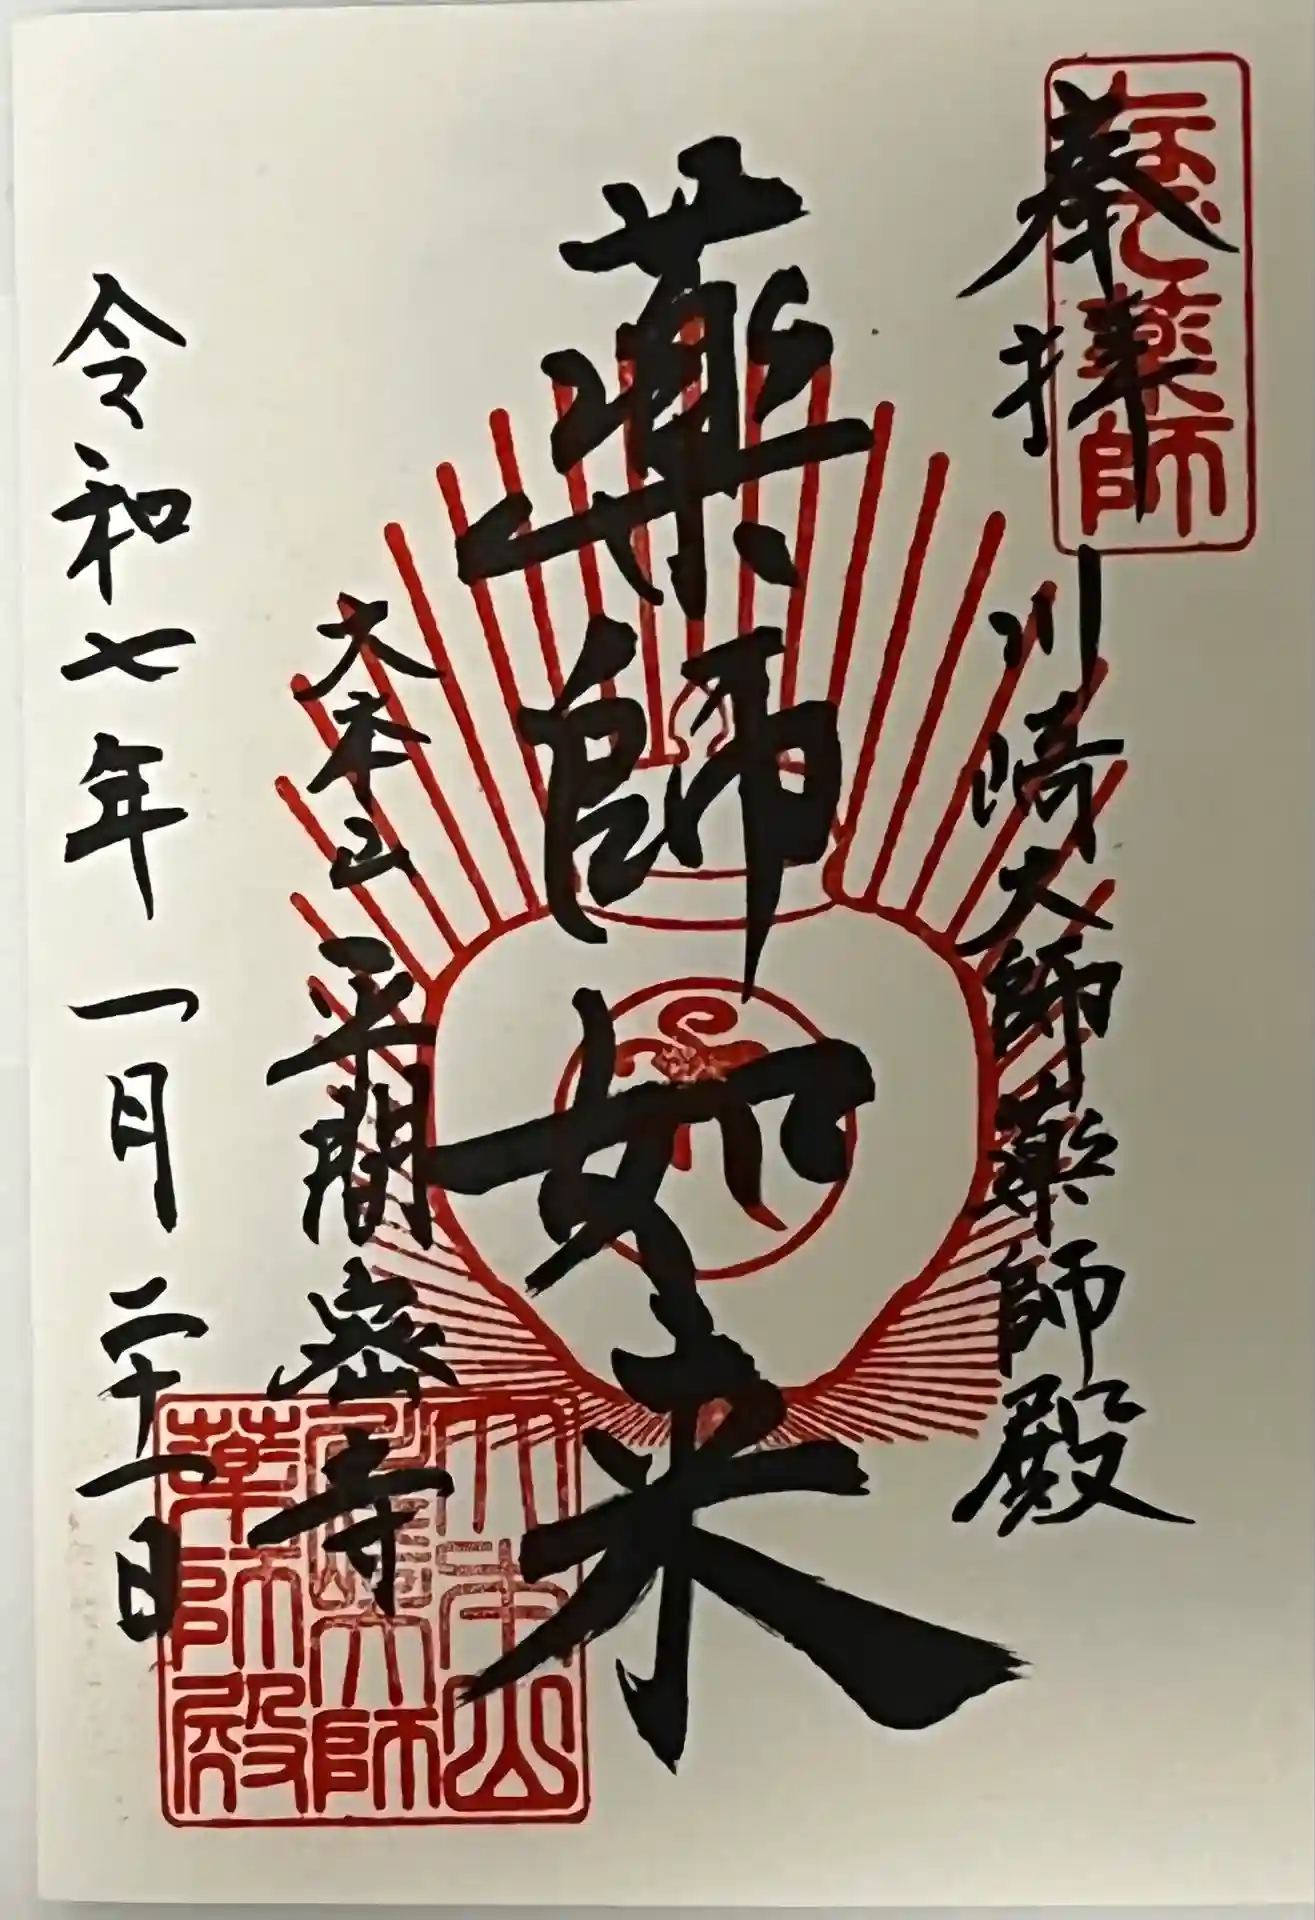 なで薬師
奉拝
川崎大師薬師殿
薬師如来
大本山 平間密寺
令和七年一月二十一日
大本山
川崎大師
薬師殿